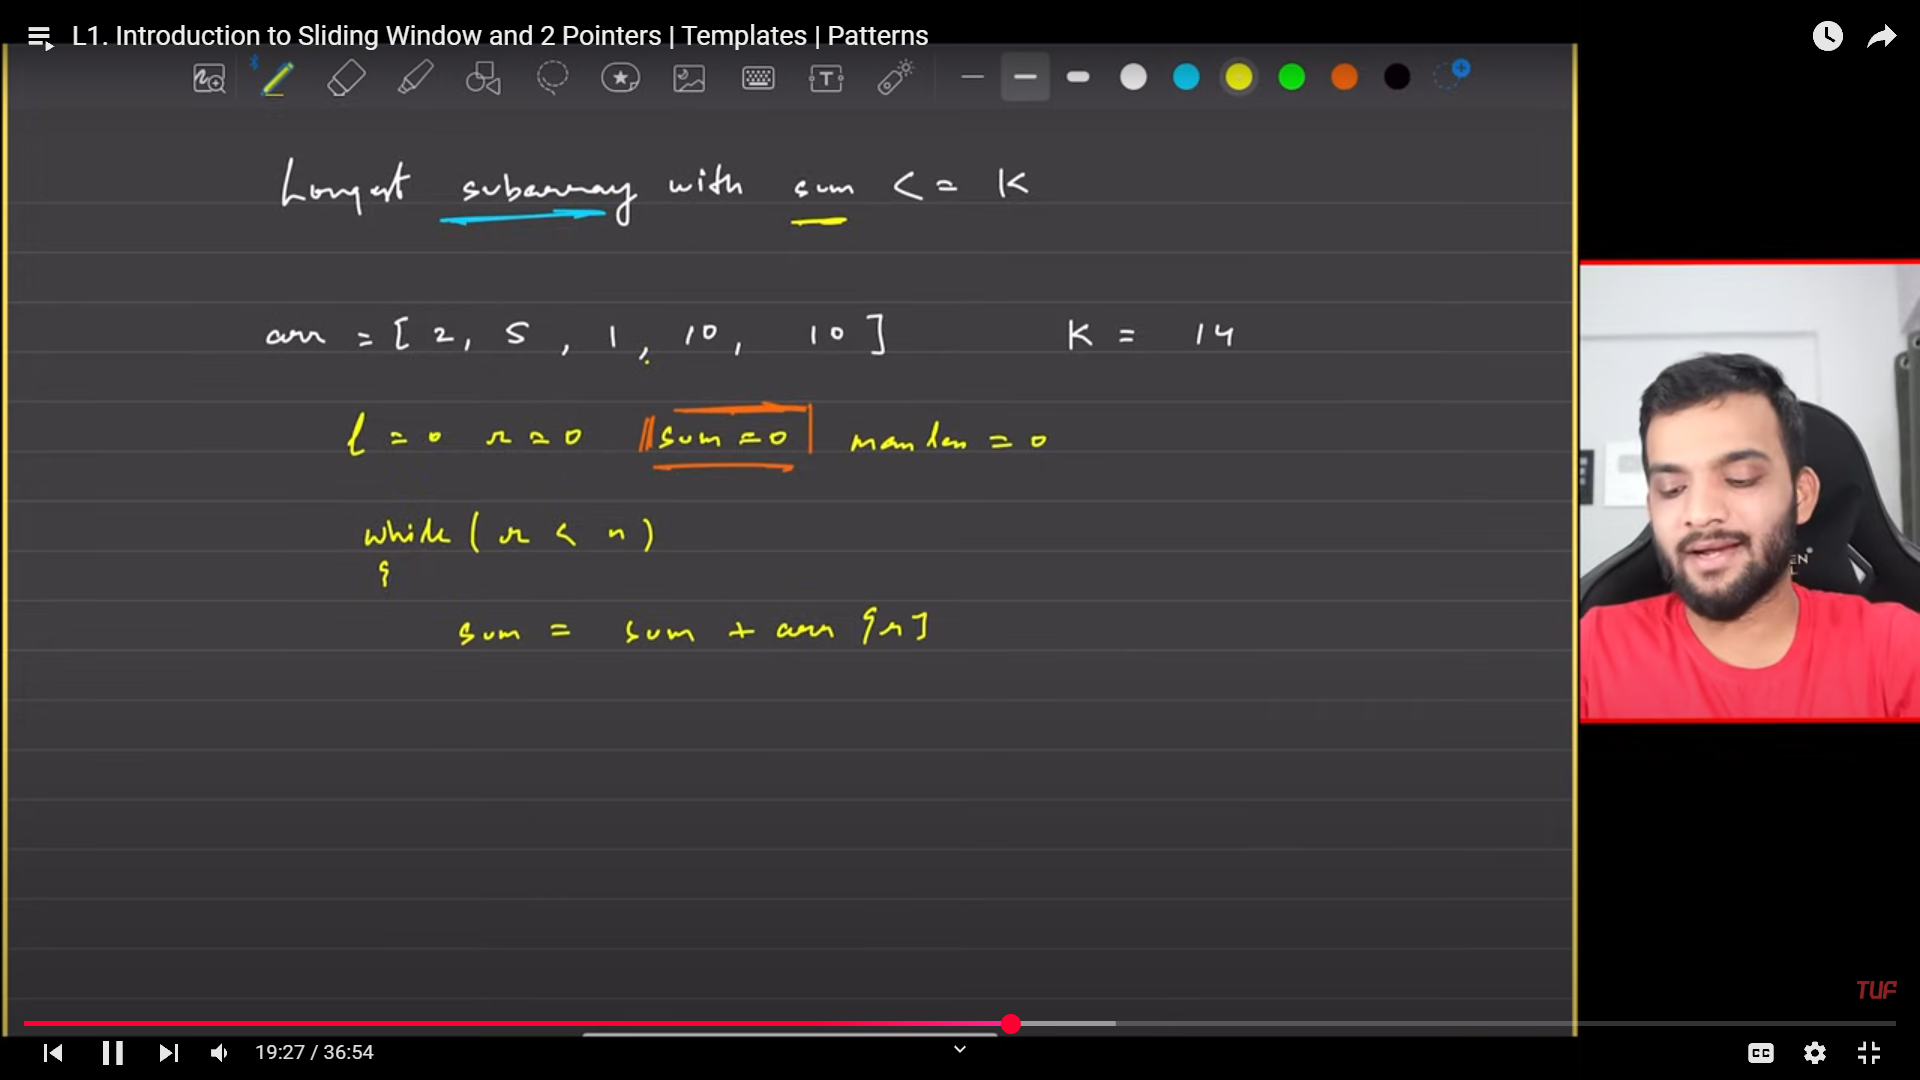 L1. Introduction to Sliding Window and 2 Pointers | Templates | Patterns
Longest subarray with sum <= K
arr = [ 2, 5, 1, 10, 10 ] K = 14
l = 0 r = 0 sum = 0 maxlen = 0
while ( r < n )
{
sum = sum + arr [r]
EN
TUF
19:27 / 36:54
CC